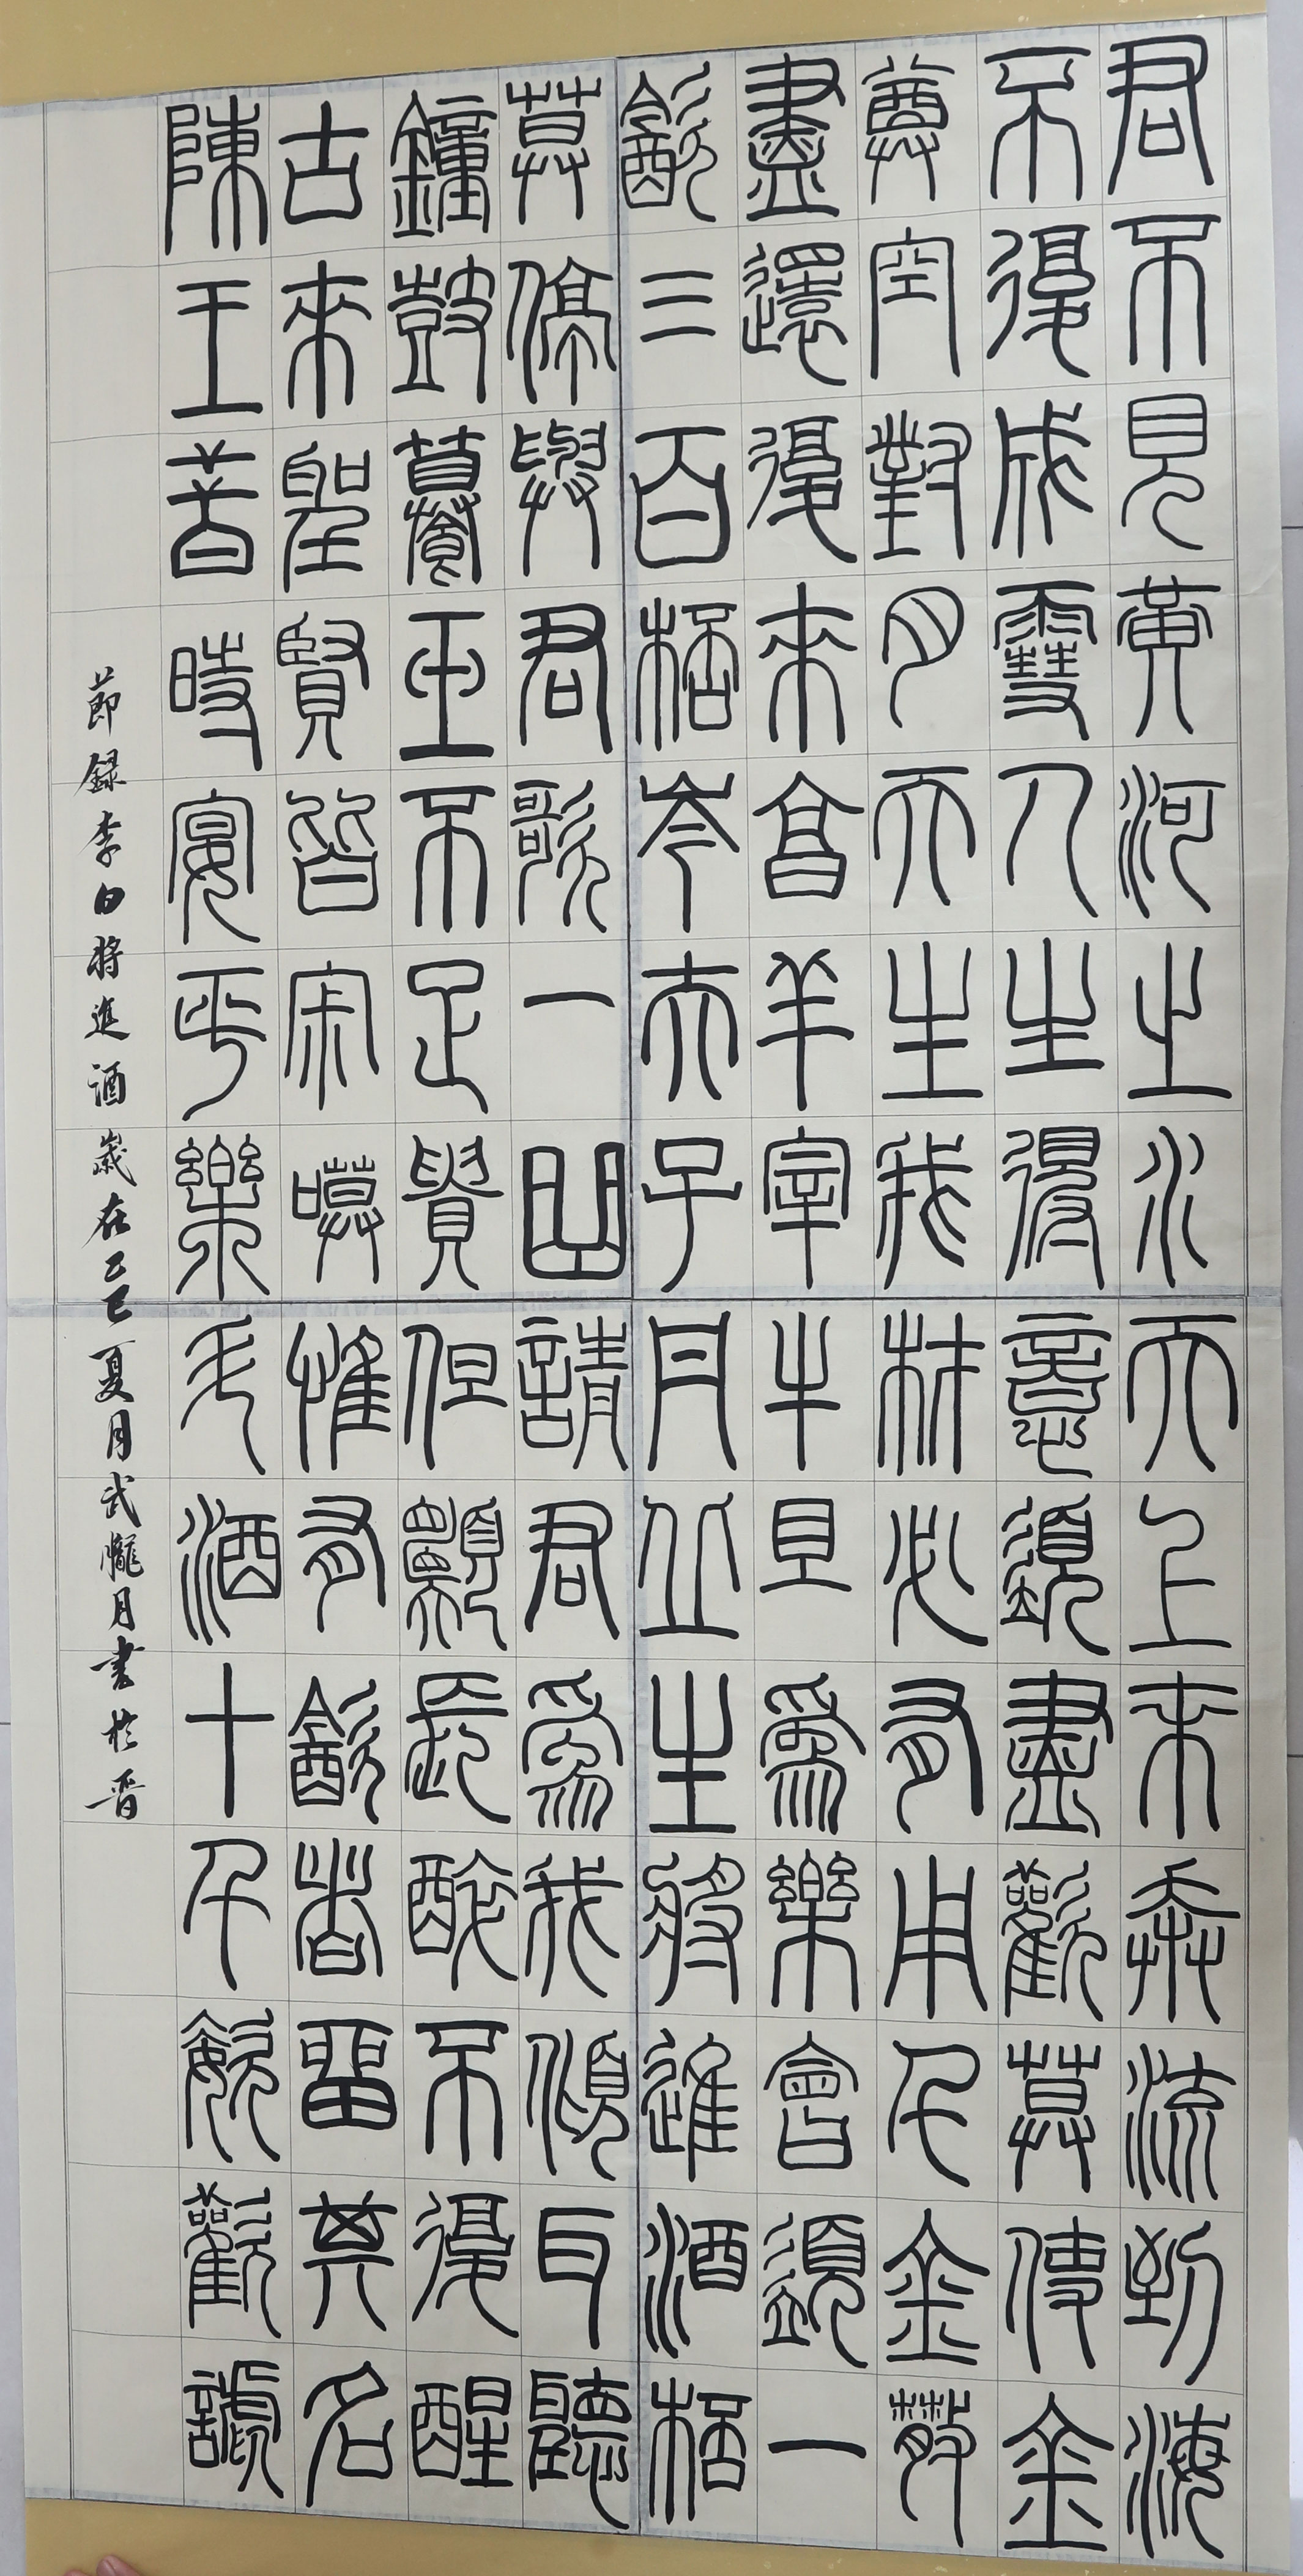 君不見黃河之水天上來奔流到海
不復成雪人生得意須盡歡莫使金
尊空對月天生我材必有用千金散
盡還復來亯羊宰牛且爲樂會須一
飲三百桮岑夫子丹丘生將進酒桮
莫停與君歌一曲請君爲我傾耳聽
鐘鼓饌玉不足貴但願長醉不復醒
古來聖賢皆寂寞惟有飲者留其名
陳王昔時宴平樂斗酒十千恣歡謔
節錄李白將進酒歲在乙巳夏月武朧月書於晉